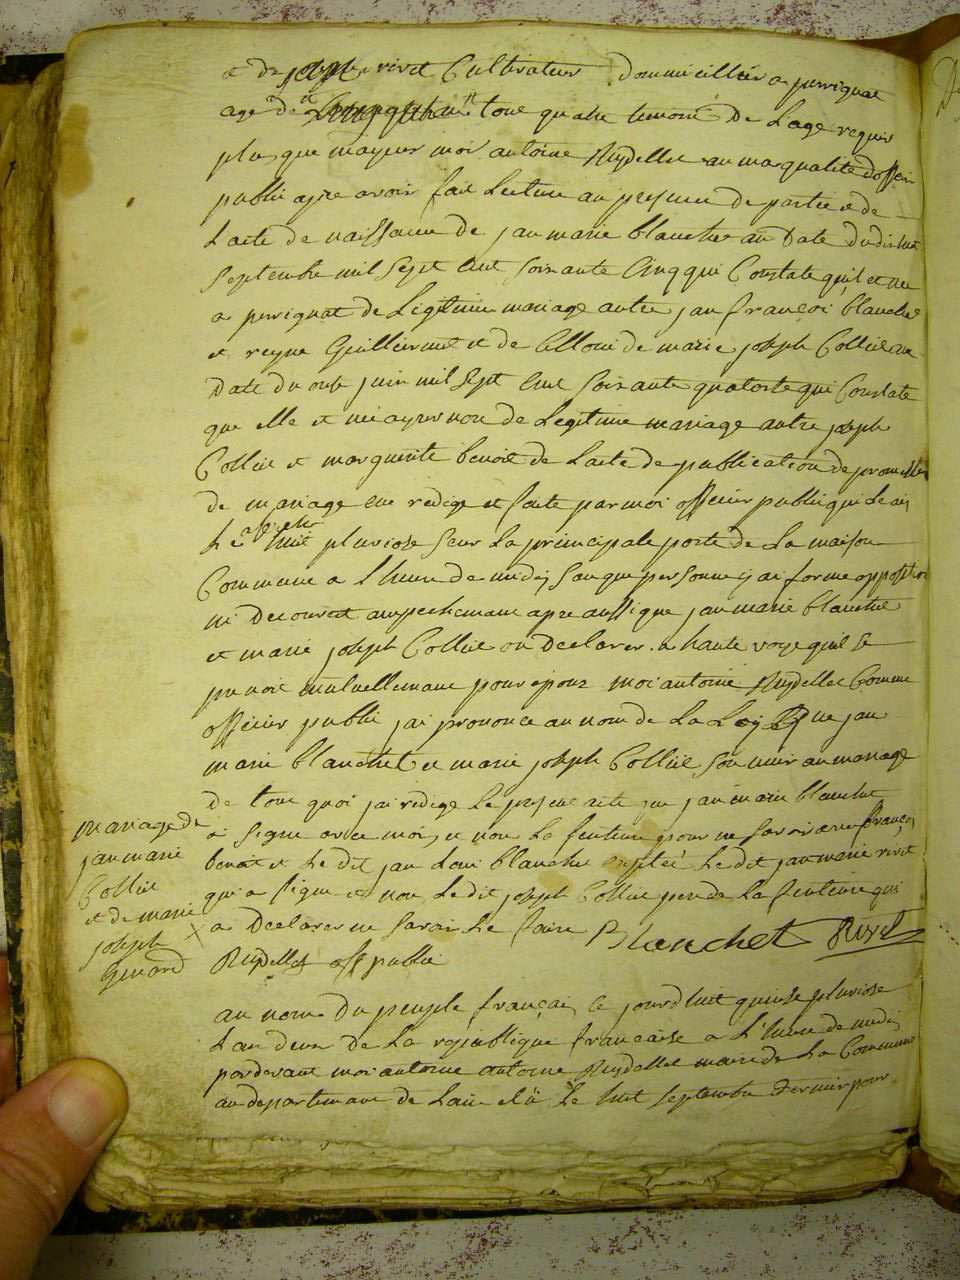 rivet Cultivateur Domicillier a perignat
agé de tout quatre temoin De Lage requis
plus que mageur moi antoine Rupellet au ma qualité doffisir
publi apre avoir fait Lecture au presence de partie & de
Lacte de naissance de jan marie blanchet au Date du dishuit
Septembre mil Sept Cent Soixante Cinq qui Constate quil et ne
a perrignat de Legitime mariage autre jan françoi blanchet
et reyne Guillermet et de Celloui de marie joseph Collie au
Date du juin mil Sept Cent Soixante quatorse qui Constate
que elle et ne de Legitime mariage autre joseph
Collie et marguerite benoit de Lacte de publication de promesses
de mariage redige et faite par moi officier publi qui Le
Le huit pluviose Seur La principale porte de La maison
Commune a L'heure de midi san que personne y ai forme opposition
ni Decouvert ampechemant apre aussi que jan marie blanchet
et marie joseph Collie on Declarer a haute voye quil Se
prenoit mutuellemant pour epoux moi antoine Rupellet Comme
officier publi jai prononce au nom de La Loy que jan
marie blanchet et marie joseph Collie Son unir au mariage
De tout quoi jai redige Le present acte que jan marie blanchet
a Signe avec moi, et non La future pour ne Savoir françoi
benoit et Le dit jan Loui blanchet Le dit jan marie rivet
qui a Signe et non Ledit joseph Collie pere de La future qui
a Declarer ne Savoir Le faire Blanchet Rivet
Rupellet off publi
mariage de
jan marie
Collie
et de marie
joseph
Genard
au nom Du peuple français Ce jourdhuit quinse pluviose
L'an deux de La republique française a L'heure de midi
pardevant moi antoine antoine Rupellet maire de La Commune
au departemant de Lain elu Le huit Septembre Dernier pour